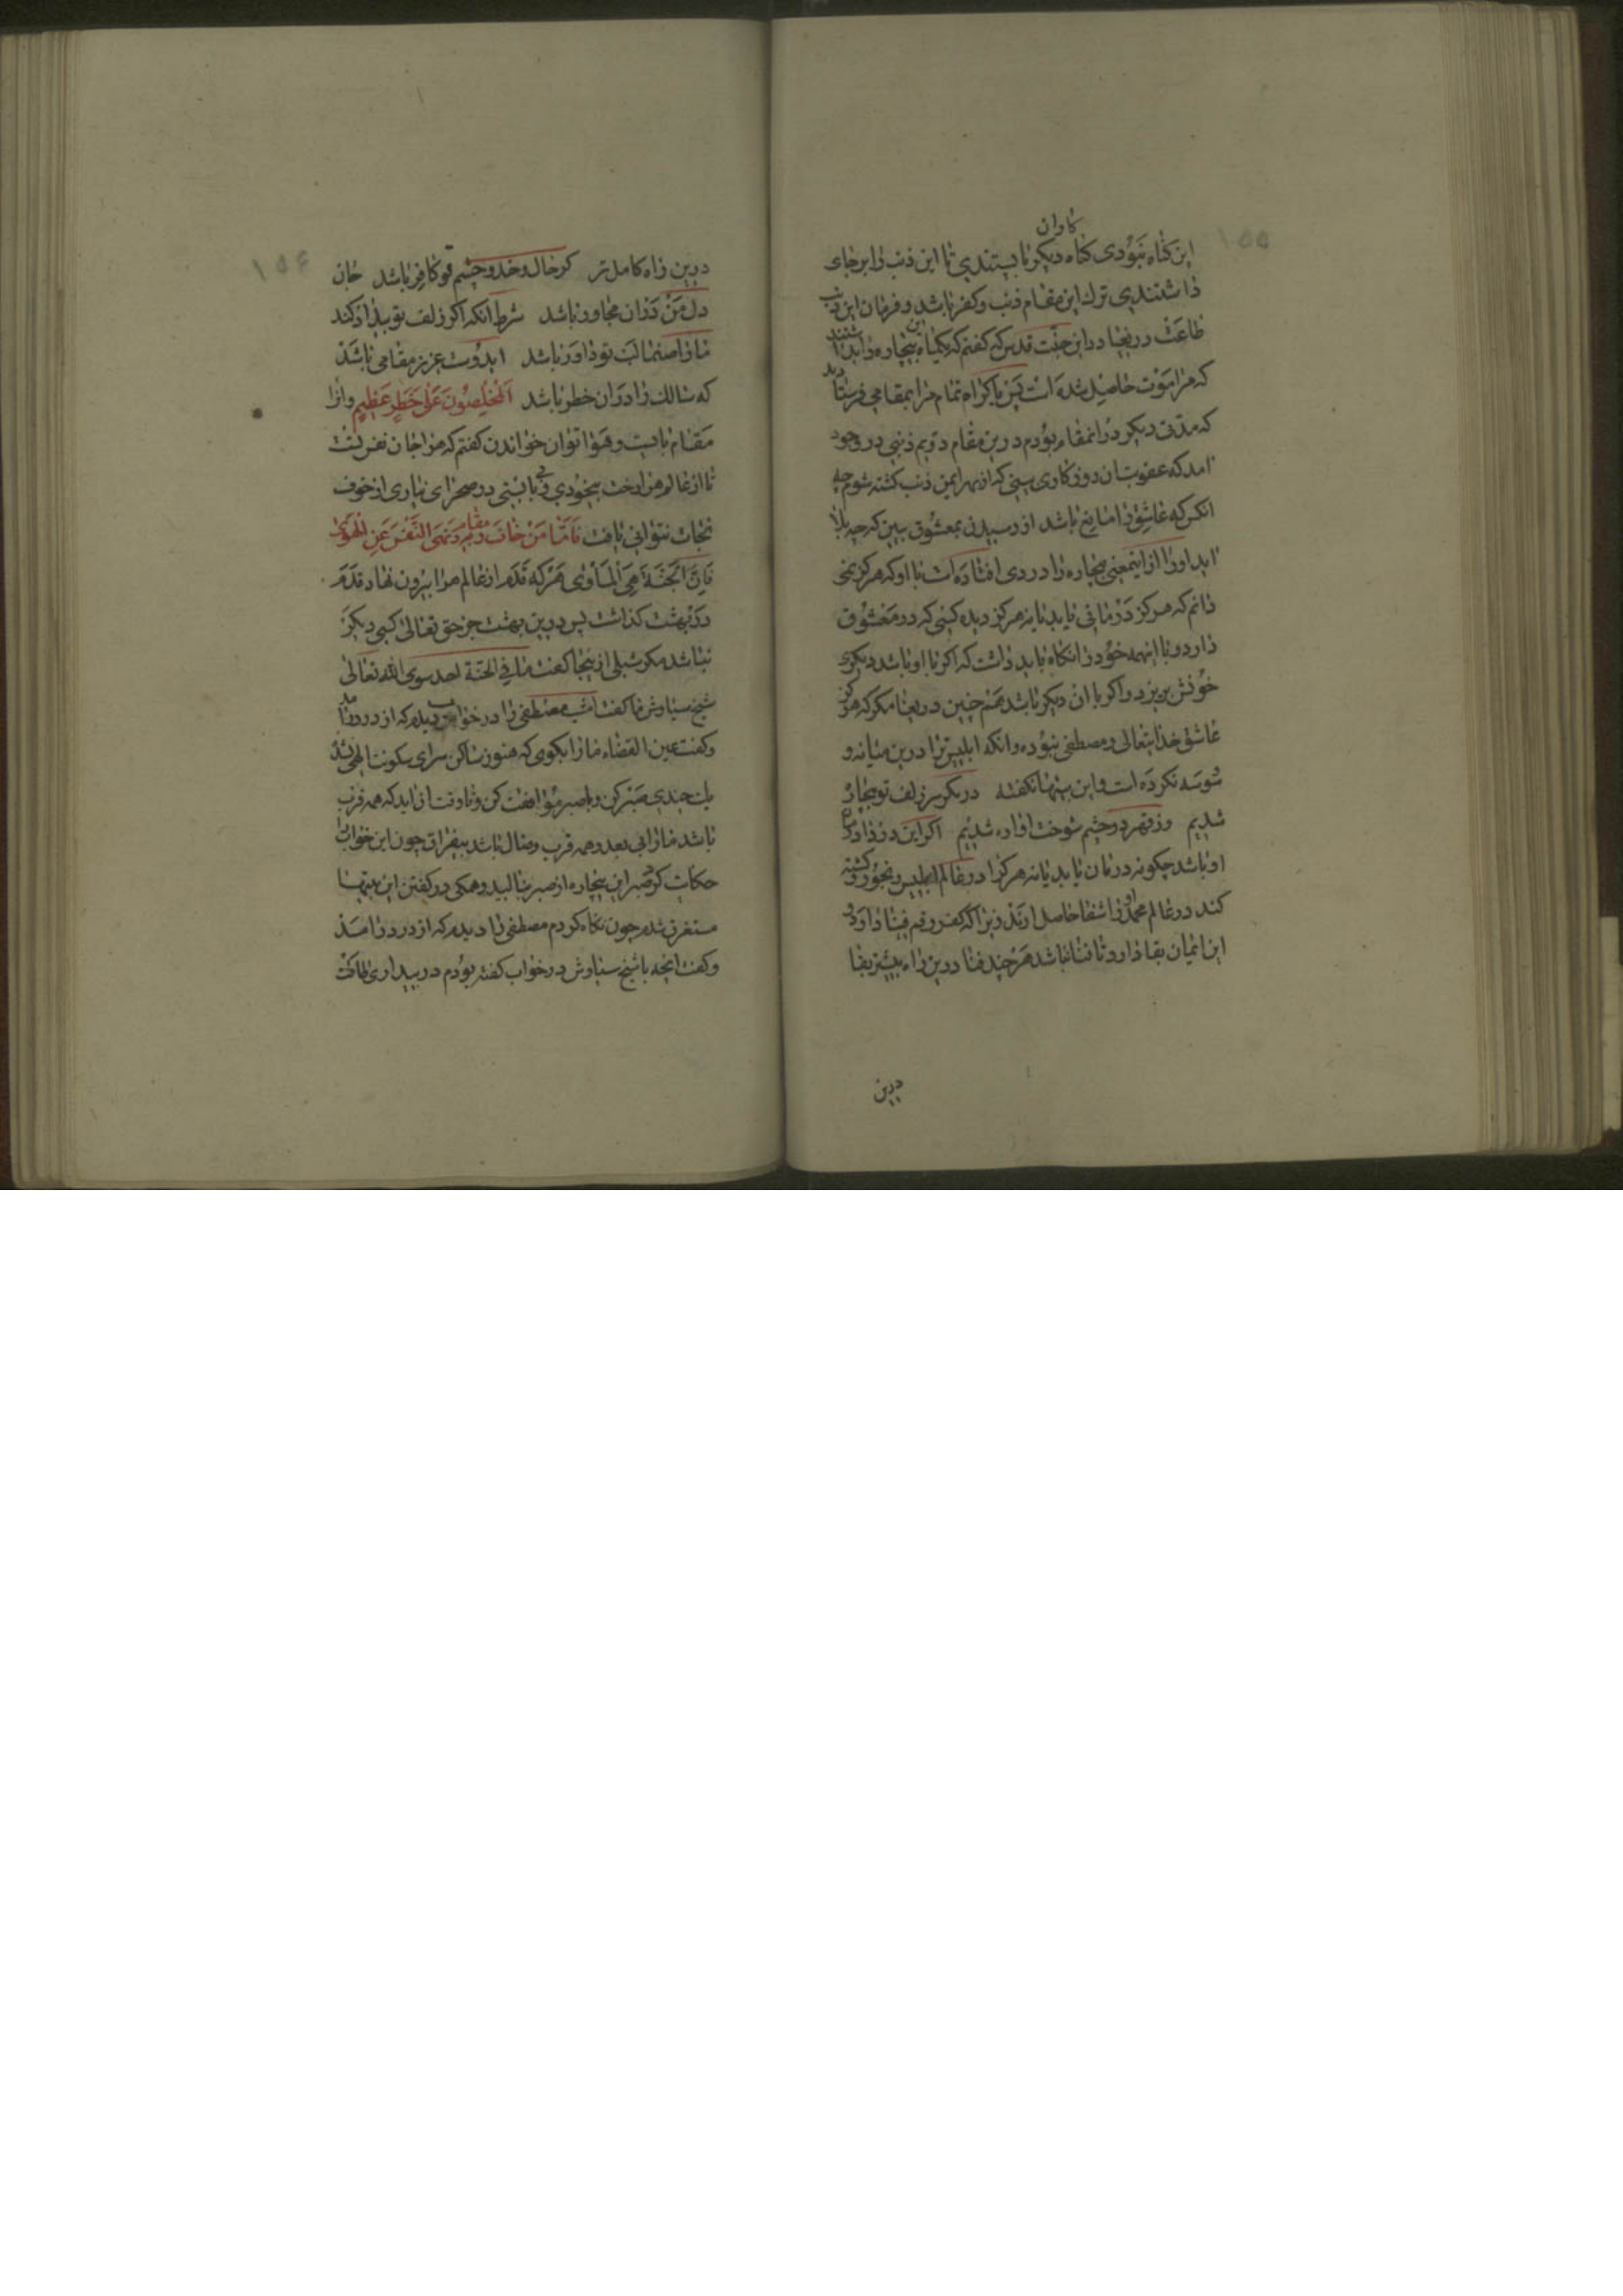 ۱۵۵
کاوان
این کناه نبودی کناه دیکر بایستندی تا این ذنب را بر جای
داشتندی ترک این مقام ذنب و کفر باشد و فرمان این ذنب
طاعت دریغا در این جنت قدس که کفتم که یکماه این بیچاره را بداشتند
که مرا موت حاصل شده است پس باکراه تمام مرا بمقامی فرستاد
که مدتی دیکر در انمقام بودم درین مقام دویم ذنبی در وجود
امد که عقوبت ان روزکاری بینی که از بهر این ذنب کشته شوم چه
انکس که عاشق را مانع باشد از رسیدن بمعشوق ببین که چه بلا
اید او را از اینمعنی بیچاره را دردی افتاده است با او که هرکز نمی
دانم که هرکز درمانی یابد یا نه هرکز دیده کسی که دو معشوق
دارد و با اینهمه خود را نکاه باید داشت که اکر با او باشد دیکری
خونش بریزد و اکر با ان دیکر باشد هم چنین دریغا مکر که هرکز
عاشق خدایتعالی و مصطفی نبوده وانکه ابلیس ترا درین میانه و
سوسه نکرده است و این بیتها نکفته در بکر سر زلف تو بیچاره
شدیم وز قهر دو چشم شوخت اواره شدیم اکر این درد او را
او باشد چکونه درمان یابد یا نه هرکرا در عالم ابلیس رنجور و کشته
کند در عالم محمد او را شفا حاصل ارند زیرا که کفر رقم فنا دارد و
این ایمان بقا دارد تا فنا نباشد هر چند فنا درین راه بیشتر بقا
درین
۱۵۶
درین راه کامل تر کر خال و خد و چشم تو کافر باشد جان
دل من در ان مجاور باشد شرط انکه اکر زلف تو بیداد کند
ما را صنما لب تو داور باشد ایدوست عزیز مقامی باشد
که سالک را در ان خطر باشد المخلصون علی خطر عظیم وانرا
مقام بایست و هوا توان خواندن کفتم که مرا جان نفس است
تا از عالم مرا رخت بیخودی و بابستی در صحرای نیاری از خوف
نجات نتوانی یافت فاما من خاف مقام ربه و نهی النفس عن الهوی
فان الجنة هی المأوی هر که قدم از عالم مرا بیرون نهاد قدم
در بهشت کذاشت پس درین بهشت جز حق تعالی کسی دیکر
نباشد مکر شبلی از ینجا کفت ما فی الجنة احد سوی الله تعالی
شیخ سیاوش ما کفت امشب مصطفی را در خواب دیدم که از در درامد
وکفت عین القضاة ما را بکوی که هنوز ساکن سرای سکونت الهی نشد
یک چندی صبر کن و با صبر موافقت کن و تا وقت ان اید که همه قرب
باشد ما را بی بعد و همه قرب وصال باشد بیفراق چون این خواب را
حکایت کرد صبر این بیچاره از صبر بنالید و همکی در کفتن این بیتها
مستغرق شدم چون نکاه کردم مصطفی را دیدم که از در درامد
وکفت انچه با شیخ سیاوش در خواب کفته بودم در بیداری طاقت